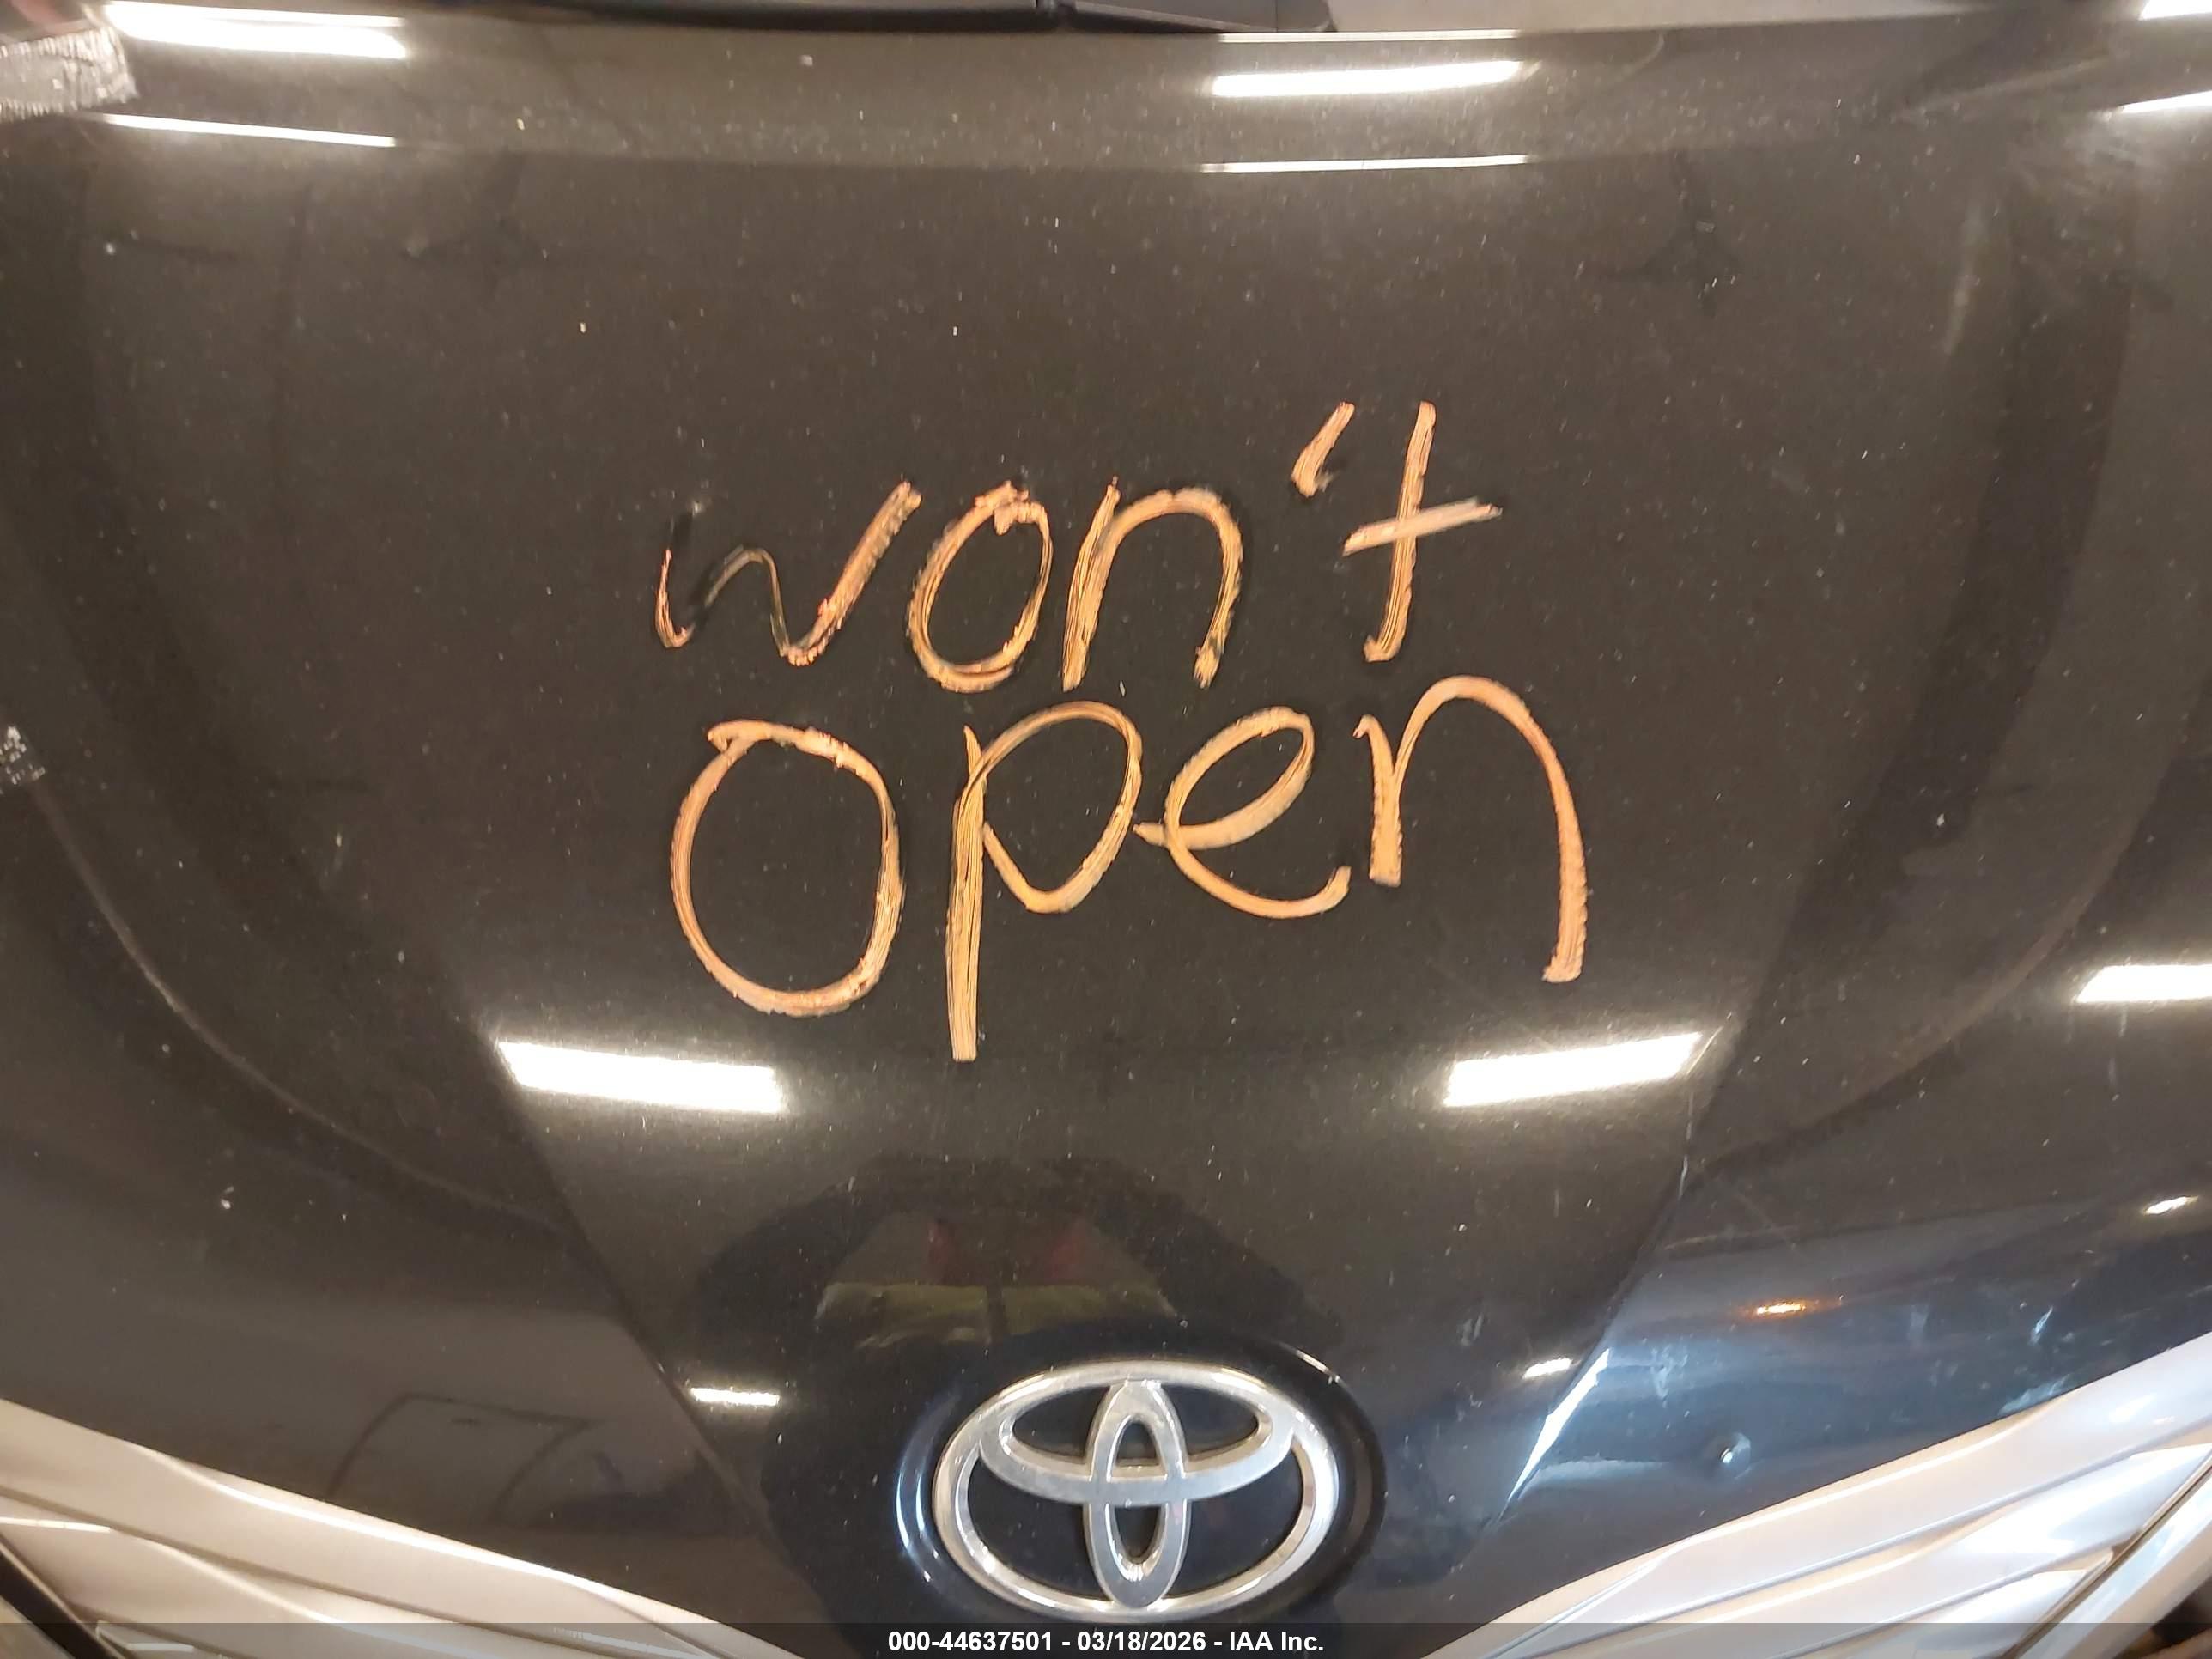 won't
open
000-44637501 - 03/18/2026 - IAA Inc.